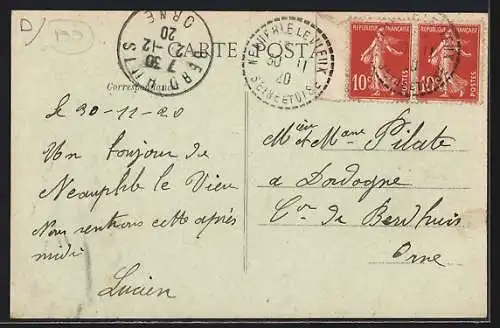 D/
199
BERD'HUIS
7 30
2-12
20
ORNE
CARTE POSTALE
NEAUPHLE LE VIEUX
30 11
20
SEINE ET OISE
REPUBLIQUE FRANÇAISE
10c
POSTES
REPUBLIQUE FRANÇAISE
10c
POSTES
Correspondance
le 30-11-20
Un bonjour de
Neauphle le Vieu
Nous rentrons cette après
midi
Lucien
Mr et Mme Pilate
a Dordogne
Cne de Berdhuis
Orne